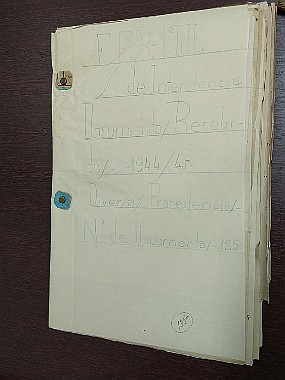 S. de Intendencia
Documentos/ Recibi-
dos/- 1944/45
Diversas Procedencias/-
Nº de Documentos/- 195
195